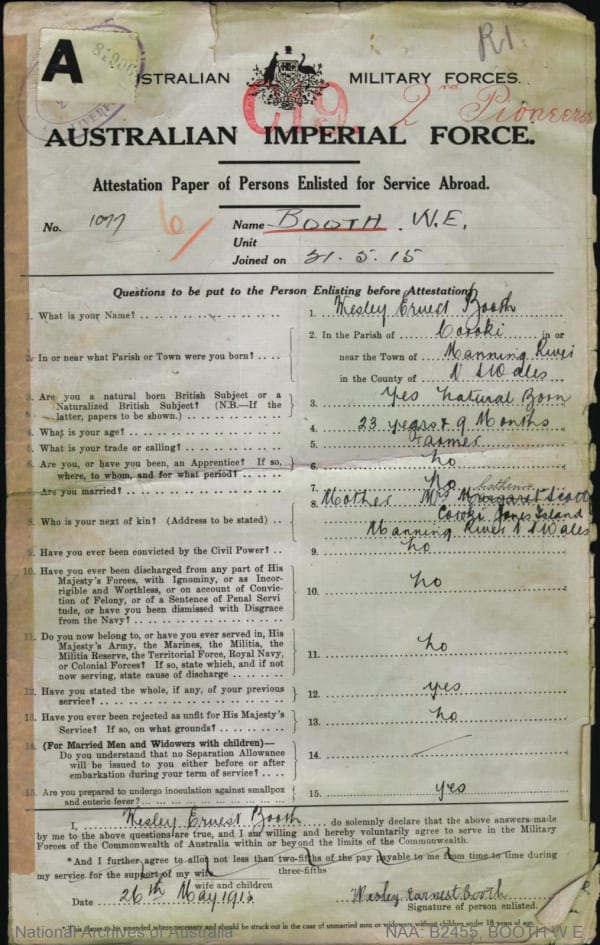 A
R1.
AUSTRALIAN MILITARY FORCES.
C19. 2nd Pioneers
AUSTRALIAN IMPERIAL FORCE.
Attestation Paper of Persons Enlisted for Service Abroad.
No. 1077 6/ Name BOOTH. W.E.
Unit
Joined on 31.5.15
Questions to be put to the Person Enlisting before Attestation.
1. What is your Name? 1. Wesley Ernest Booth
2. In or near what Parish or Town were you born? 2. In the Parish of Cooroki in or
near the Town of Manning River
in the County of N S Wales
3. Are you a natural born British Subject or a
Naturalized British Subject? (N.B.—If the
latter, papers to be shown.) 3. Yes Natural Born
4. What is your age? 4. 23 years & 9 Months
5. What is your trade or calling? 5. Farmer
6. Are you, or have you been, an Apprentice? If so,
where, to whom, and for what period? 6. No
7. Are you married? 7. No
8. Who is your next of kin? (Address to be stated) 8. Mother Mrs Margaret Scott
Jones Island
Manning River N S Wales
9. Have you ever been convicted by the Civil Power? 9. No
10. Have you ever been discharged from any part of His
Majesty's Forces, with Ignominy, or as Incor-
rigible and Worthless, or on account of Convic-
tion of Felony, or of a Sentence of Penal Servi
tude, or have you been dismissed with Disgrace
from the Navy? 10. No
11. Do you now belong to, or have you ever served in, His
Majesty's Army, the Marines, the Militia, the
Militia Reserve, the Territorial Force, Royal Navy,
or Colonial Forces? If so, state which, and if not
now serving, state cause of discharge 11. No
12. Have you stated the whole, if any, of your previous
service? 12. yes
13. Have you ever been rejected as unfit for His Majesty's
Service? If so, on what grounds? 13. No
14. (For Married Men and Widowers with children)—
Do you understand that no Separation Allowance
will be issued to you either before or after
embarkation during your term of service? 14.
15. Are you prepared to undergo inoculation against smallpox
and enteric fever? 15. yes
I, Wesley Ernest Booth do solemnly declare that the above answers made
by me to the above questions are true, and I am willing and hereby voluntarily agree to serve in the Military
Forces of the Commonwealth of Australia within or beyond the limits of the Commonwealth.
*And I further agree to allot not less than two-fifths of the pay payable to me from time to time during
three-fifths
my service for the support of my wife
wife and children
Date 26th May 1915 Wesley Earnest Booth
Signature of person enlisted.
*This clause to be amended where necessary and should be struck out in the case of unmarried men or widowers without children under 18 years of age.
National Archives of Australia NAA: B2455, BOOTH W E